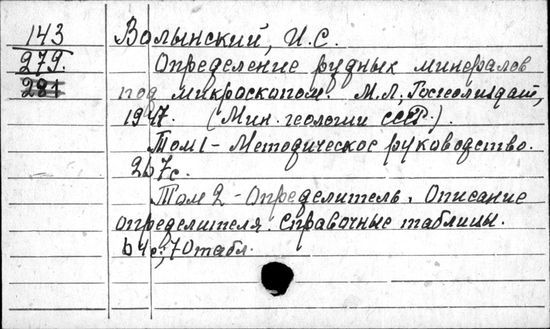 143 Волынский, И.С.
279. Определение рудных минералов
281 под микроскопом. М.Л., Госгеолиздат,
1947. (Мин. геологии СССР.).
Том 1 - Методическое руководство.
267с.
Том 2 - Определитель. Описание
определителя. Справочные таблицы.
64с., 70табл.